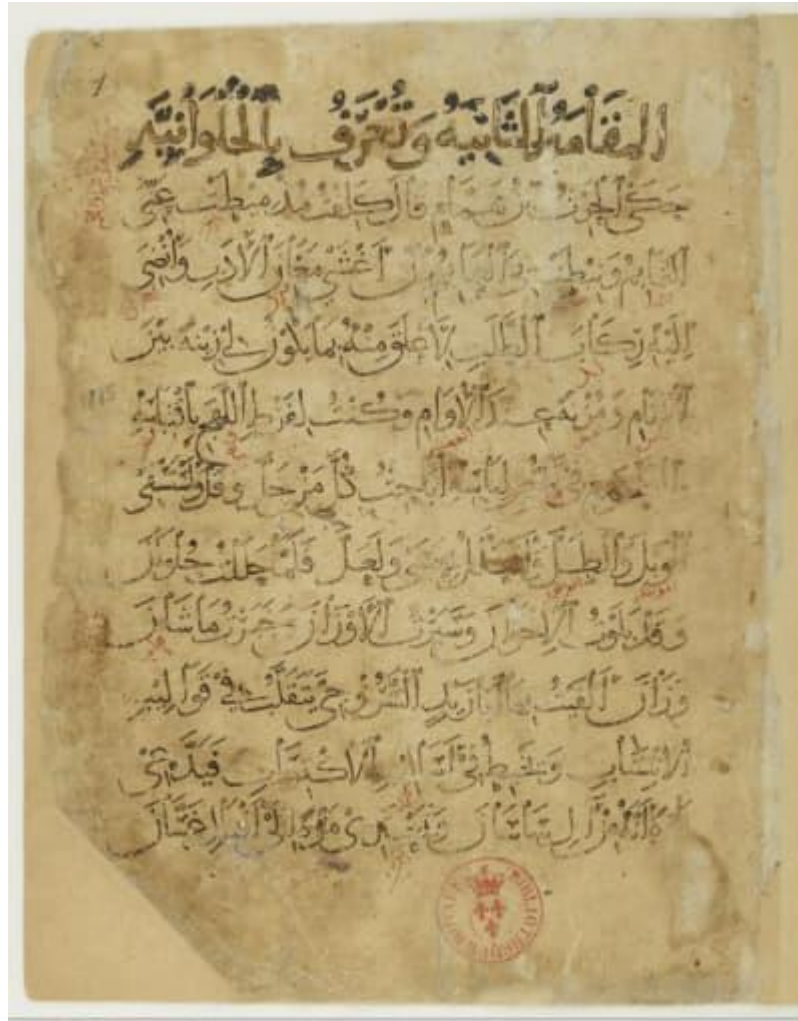 المَقَامَهُ الثَّانِيَهُ وَتُعْرَفُ بِالحُلْوَانِيَّهِ
حكى الحرث بن همام قال كلفت مذ ميطت عني
التمايم ونيطت بي العمايم بان اغشى معان الادب وانضي
اليه ركاب الطلب لاعلق منه بما يكون لي زينه بين
الانام ومزنه عند الاوام وكنت لفرط اللهج باقتباسه
والطمع في تقمص لباسه اباحث كل من جل وقل واستسقي
الوبل والطل واتعلل بعسى ولعل فلما حللت حلوان
وقد بلوت الاخوان وسبرت الاوزان وخبرت ما شان
وزان الفيت بها ابا زيد السروجي يتقلب في قوالب
الانتساب ويخبط في اساليب الاكتساب فيدعي
انه من ال ساسان ويعتزي مره الى اقيال غسان